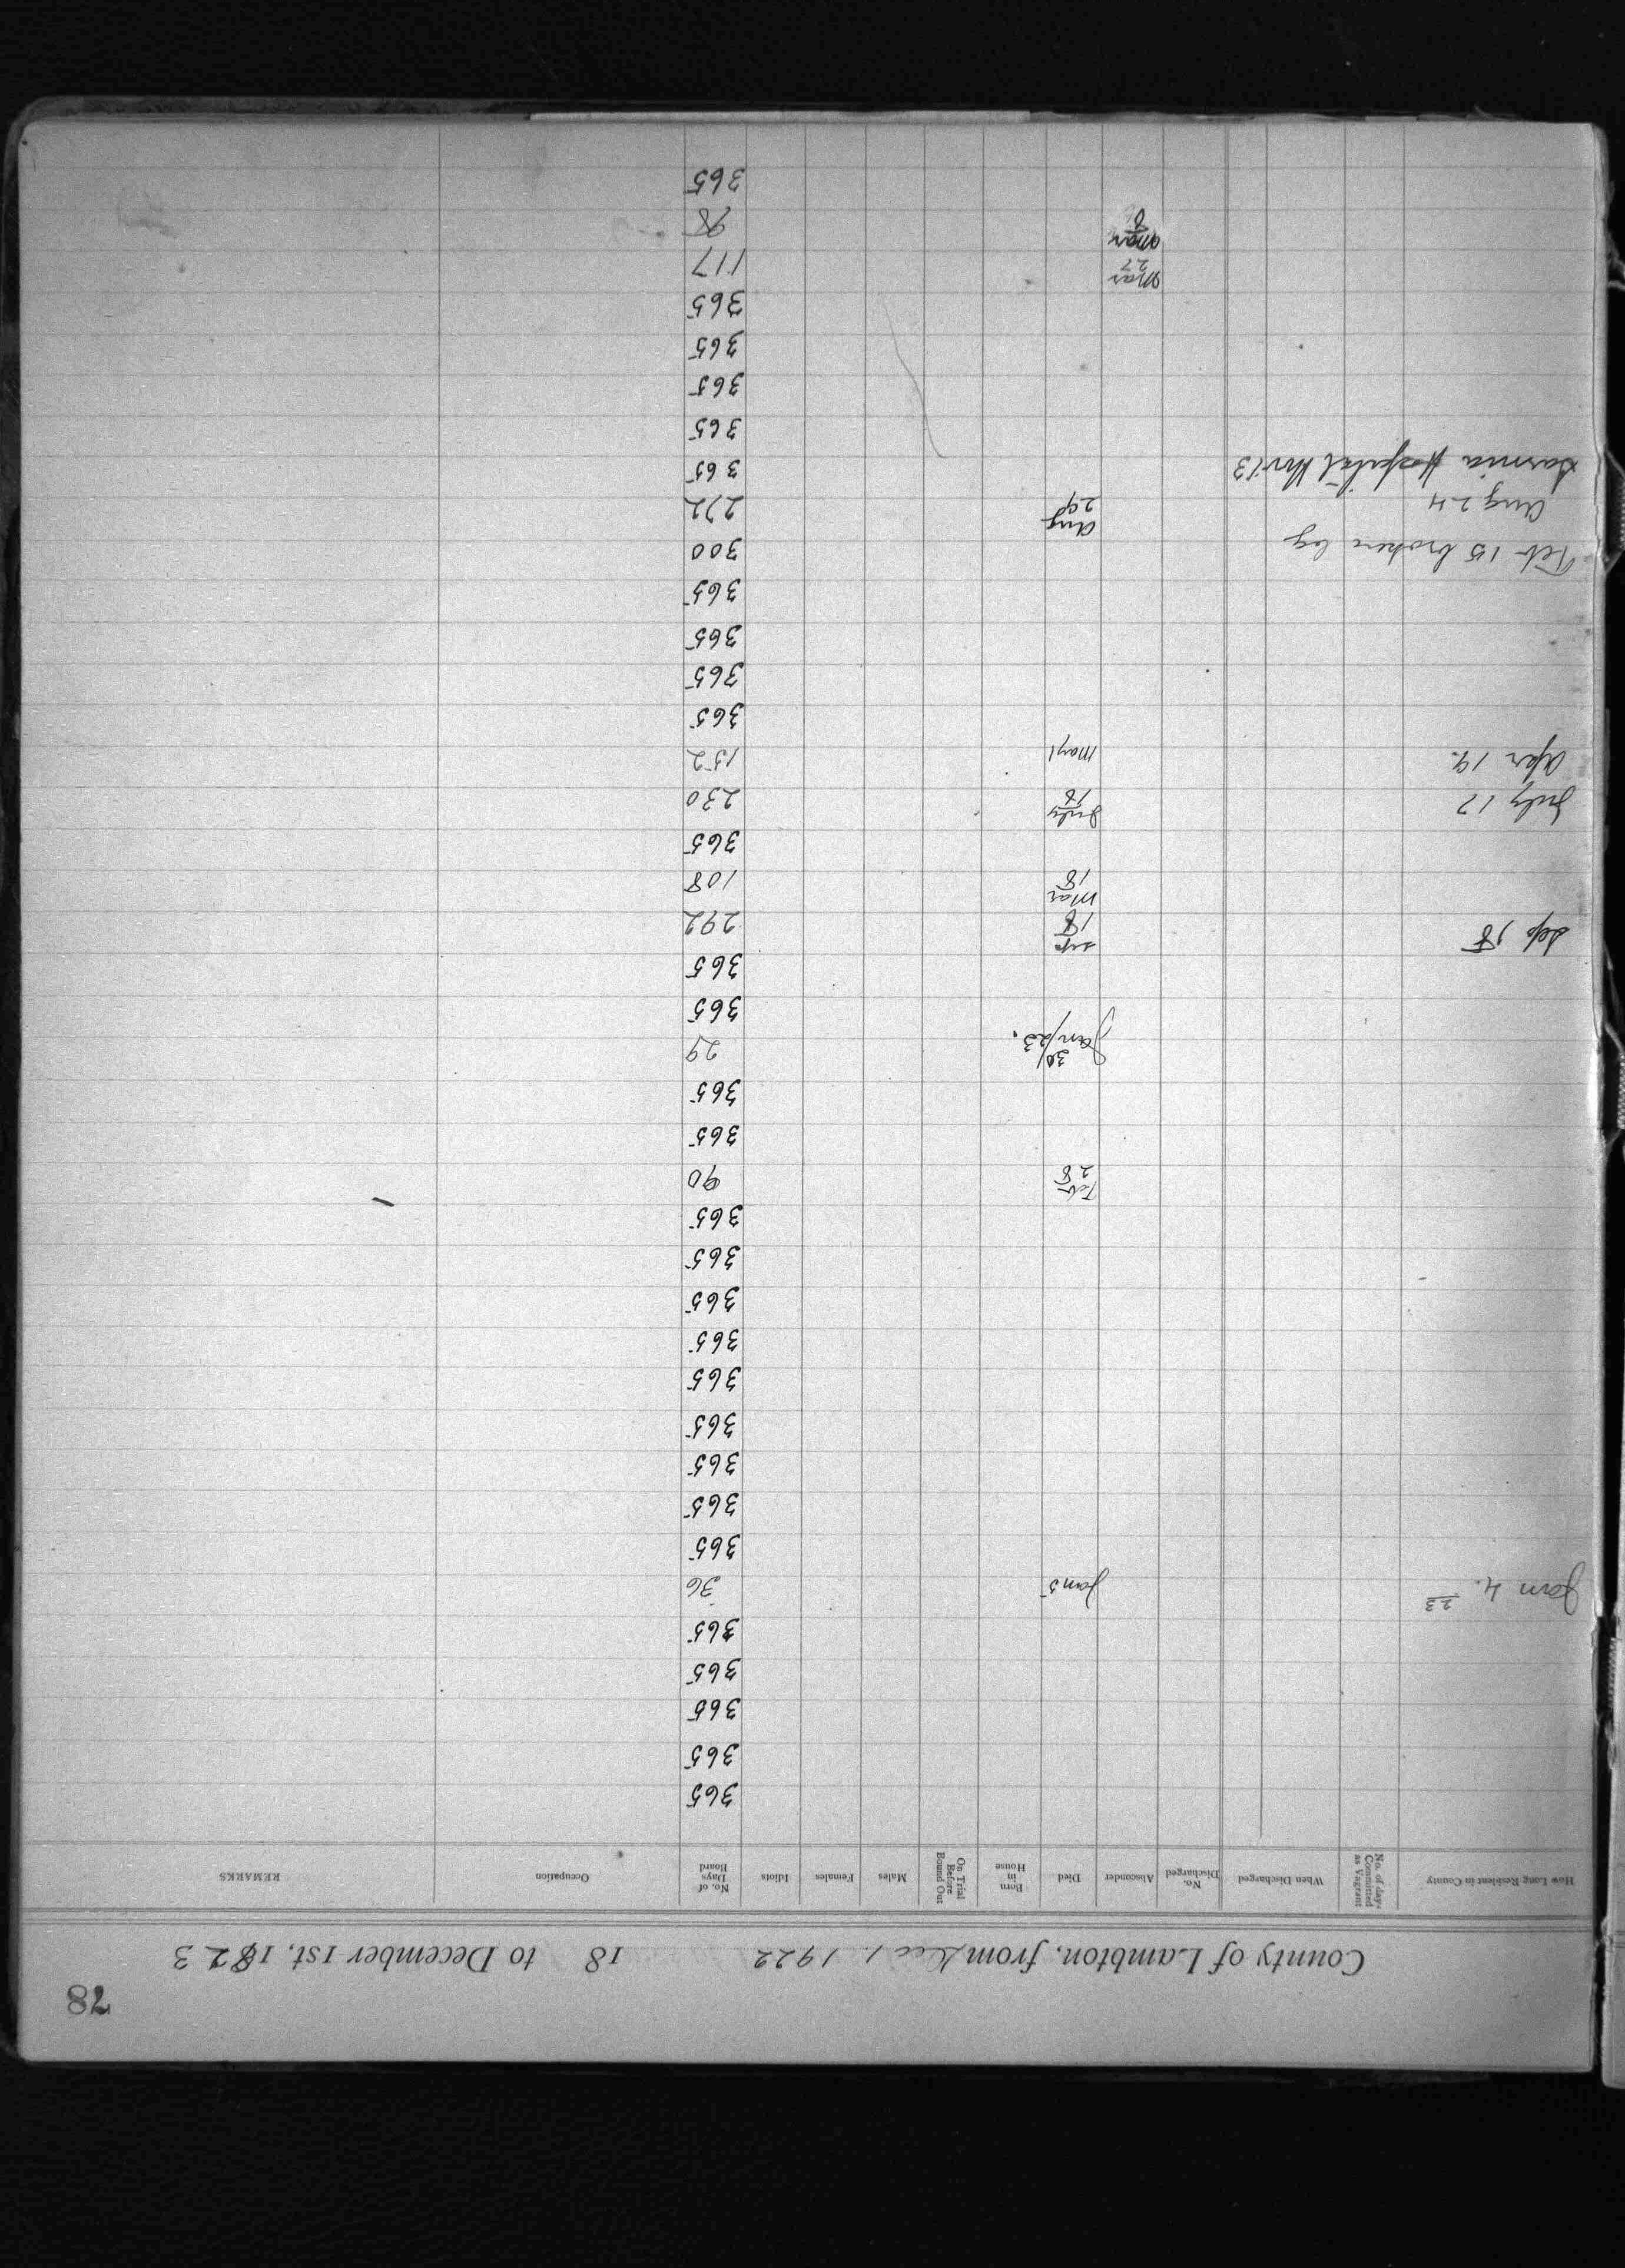 78
County of Lambton, from Dec 1 1922 18 to December 1st, 1923
How Long Resident in County No. of days Committed as Vagrant When Discharged No. Discharged Absconder Died Born in House On Trial Before Bound Out Males Females Idiots No. of Days Board Occupation REMARKS
365
365
365
365
365
Jan 4. 23 Jan 5 36
365
365
365
365
365
365
365
365
365
Feb 28 90
365
365
Jan 30/23. 29
365
365
Sep 18 Sep 18 292
Mar 18 108
365
July 17 July 18 230
Apr 19. May 1 152
365
365
365
365
Feb 15 broken leg 300
Aug 24 Aug 29 272
Sarnia Hospital Nov 13 365
365
365
365
365
Mar 27 117
Mar 8 98
365